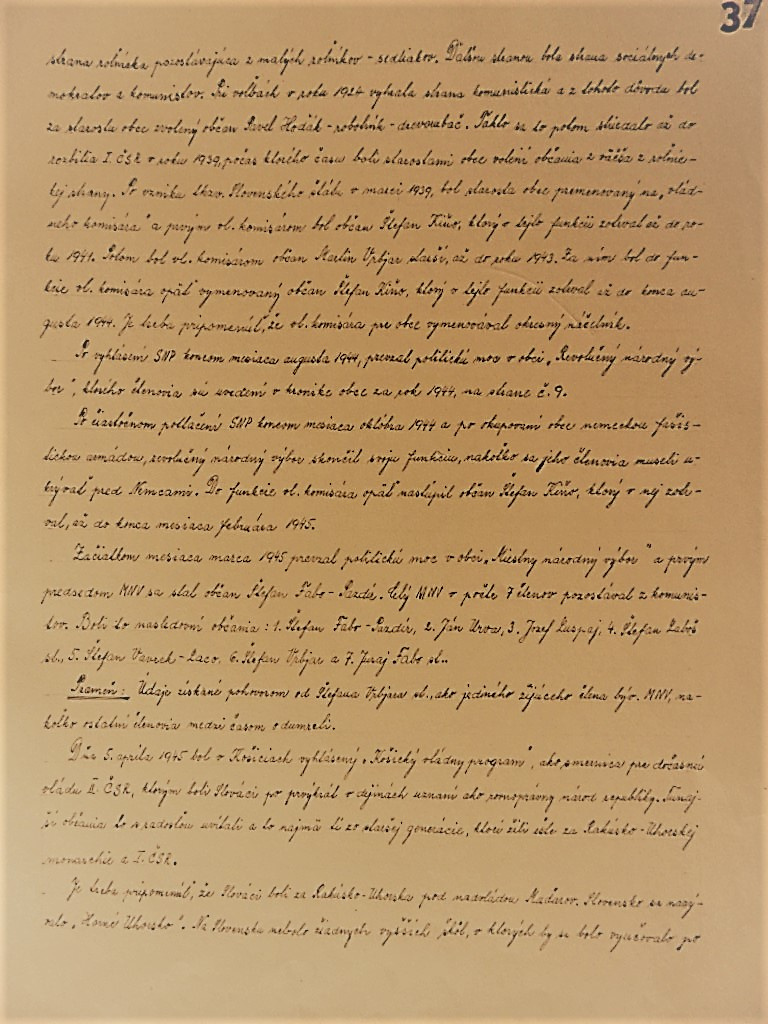 37
strana roľnícka pozostávajúca z malých roľníkov - sedliakov. Ďalšou stranou bola strana sociálnych de-
mokratov a komunistov. Pri voľbách v roku 1924 vyhrala strana komunistická a z tohoto dôvodu bol
za starostu obce zvolený občan Pavel Hodák - robotník - drevorubač. Takto sa to potom striedalo až do
rozbitia I. ČSR v roku 1939, počas ktorého času boli starostami obce volení občania z väčša z roľníc-
kej strany. Po vzniku tkzv. Slovenského štátu v marci 1939, bol starosta obce premenovaný na „vlád-
neho komisára" a prvým vl. komisárom bol občan Štefan Kiňo, ktorý v tejto funkcii zotrval až do ro-
ku 1941. Potom bol vl. komisárom občan Martin Vrbjar starší, až do roku 1943. Za ním bol do fun-
kcie vl. komisára opäť vymenovaný občan Štefan Kiňo, ktorý v tejto funkcii zotrval až do konca au-
gusta 1944. Je treba pripomenúť, že vl. komisára pre obce vymenovával okresný náčelník.
Po vyhlásení SNP koncom mesiaca augusta 1944, prevzal politickú moc v obci „Revolučný národný vý-
bor", ktorého členovia sú uvedení v kronike obce za rok 1944, na strane č. 9.
Po čiastočnom potlačení SNP koncom mesiaca októbra 1944 a po okupovaní obce nemeckou fašis-
tickou armádou, revolučný národný výbor skončil svoju funkciu, nakoľko sa jeho členovia museli u-
krývať pred Nemcami. Do funkcie vl. komisára opäť nastúpil občan Štefan Kiňo, ktorý v nej zotr-
val, až do konca mesiaca februára 1945.
Začiatkom mesiaca marca 1945 prevzal politickú moc v obci „Miestny národný výbor" a prvým
predsedom MNV sa stal občan Štefan Fabo - Pazdír. Celý MNV v počte 7 členov pozostával z komunis-
tov. Boli to nasledovní občania: 1. Štefan Fabo - Pazdír, 2. Ján Urva, 3. Jozef Luspaj, 4. Štefan Laboš
st., 5. Štefan Vavrek - Laco, 6. Štefan Vrbjar a 7. Juraj Fabo st..
Prameň: Údaje získané pohovorom od Štefana Vrbjara st., ako jediného žijúceho člena býv. MNV, na-
koľko ostatní členovia medzi časom odumreli.
Dňa 5. apríla 1945 bol v Košiciach vyhlásený „Košický vládny program", ako smernica pre dočasnú
vládu II. ČSR, ktorým boli Slováci po prvýkrát v dejinách uznaní ako rovnoprávny národ republiky. Tunaj-
ší občania to s radosťou uvítali a to najmä tí zo staršej generácie, ktorí žili ešte za Rakúsko-Uhorskej
monarchie a I. ČSR.
Je treba pripomenúť, že Slováci boli za Rakúsko-Uhorska pod nadvládou Maďarov. Slovensko sa nazý-
valo „Horné Uhorsko". Na Slovensku nebolo žiadnych vyšších škôl, v ktorých by sa bolo vyučovalo po